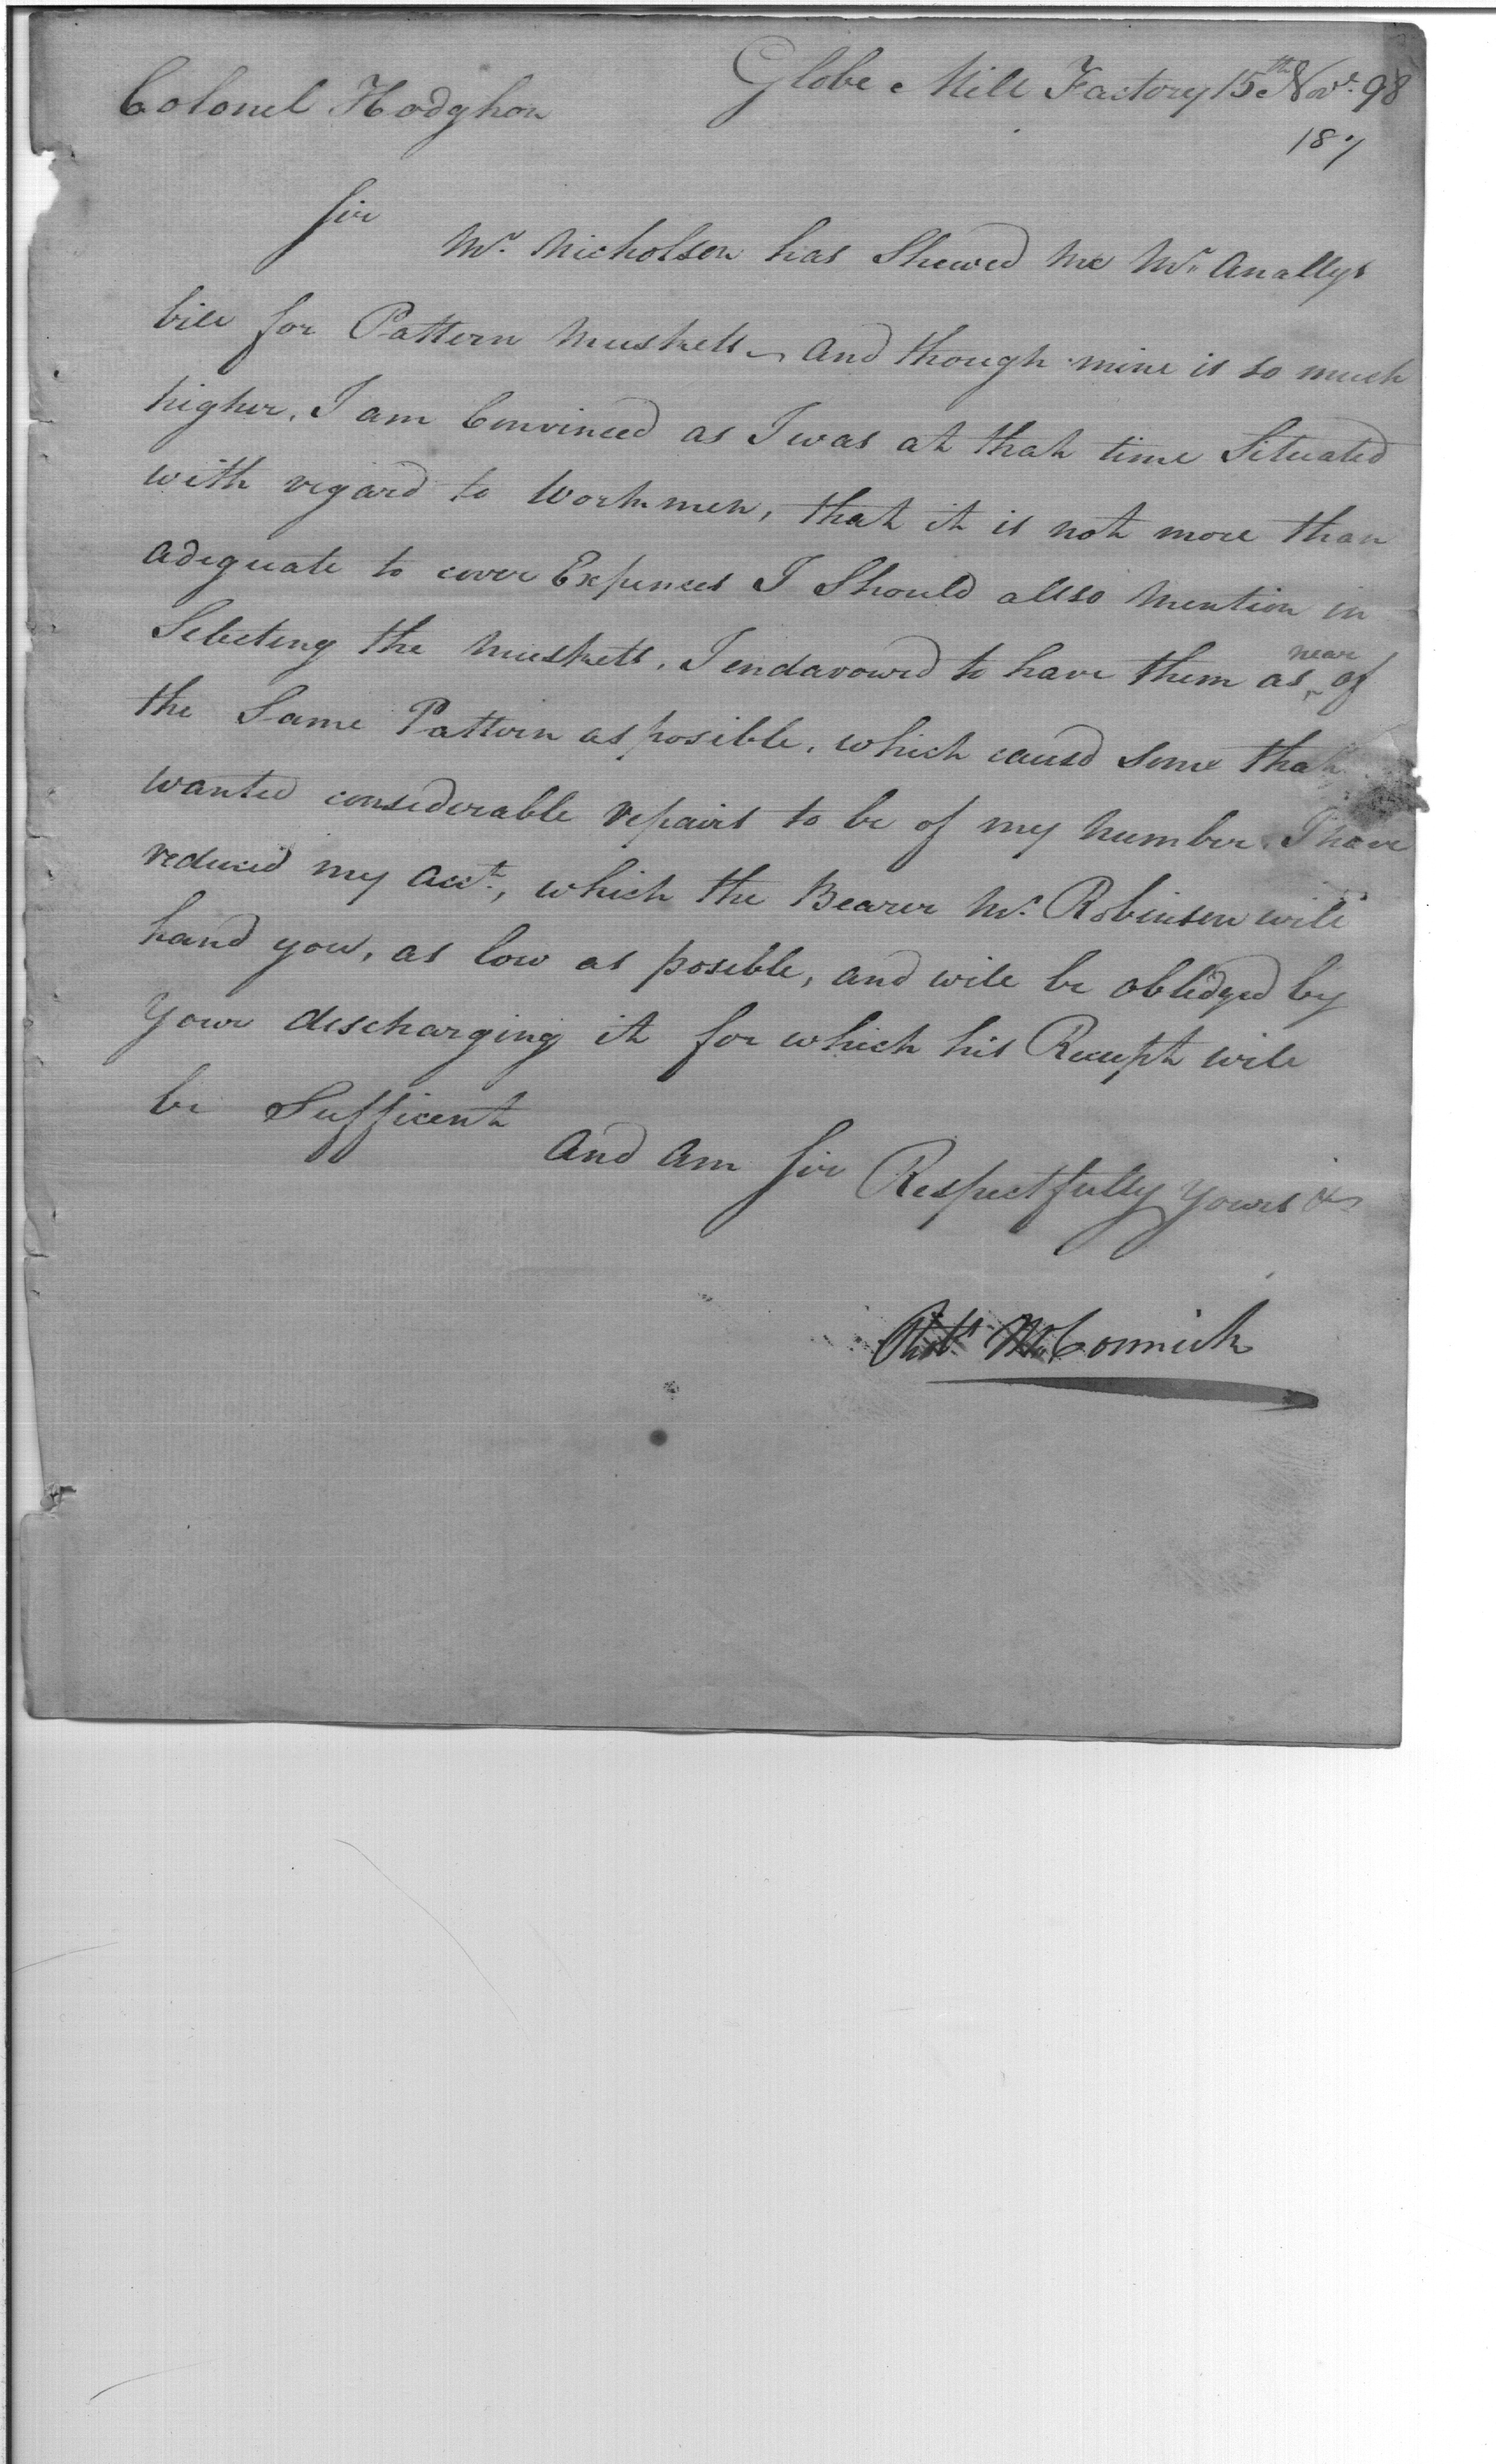 Globe Mill Factory 15th Novr. 98
Colonel Hodghon
187
Sir
Mr. Nicholson has Shewed me Mr. Anallys
bill for Pattern Muskets and though mine is so much
higher, I am Convinced as I was at that time Situated
with regard to Workmen, that it is not more than
adequate to cover Expences I Should allso mention in
Selecting the Muskets, I endavowrd to have them as near of
the Same Pattern as posible, which causd Some that
wanted considerable repairs to be of my Number. I have
reduced my Acct., which the Bearer Mr. Robinson will
hand you, as low as posible, and will be obledged by
your discharging it for which his Receipt will
be Sufficent
And Am Sir Respectfully yours &c
Robt. McCormick